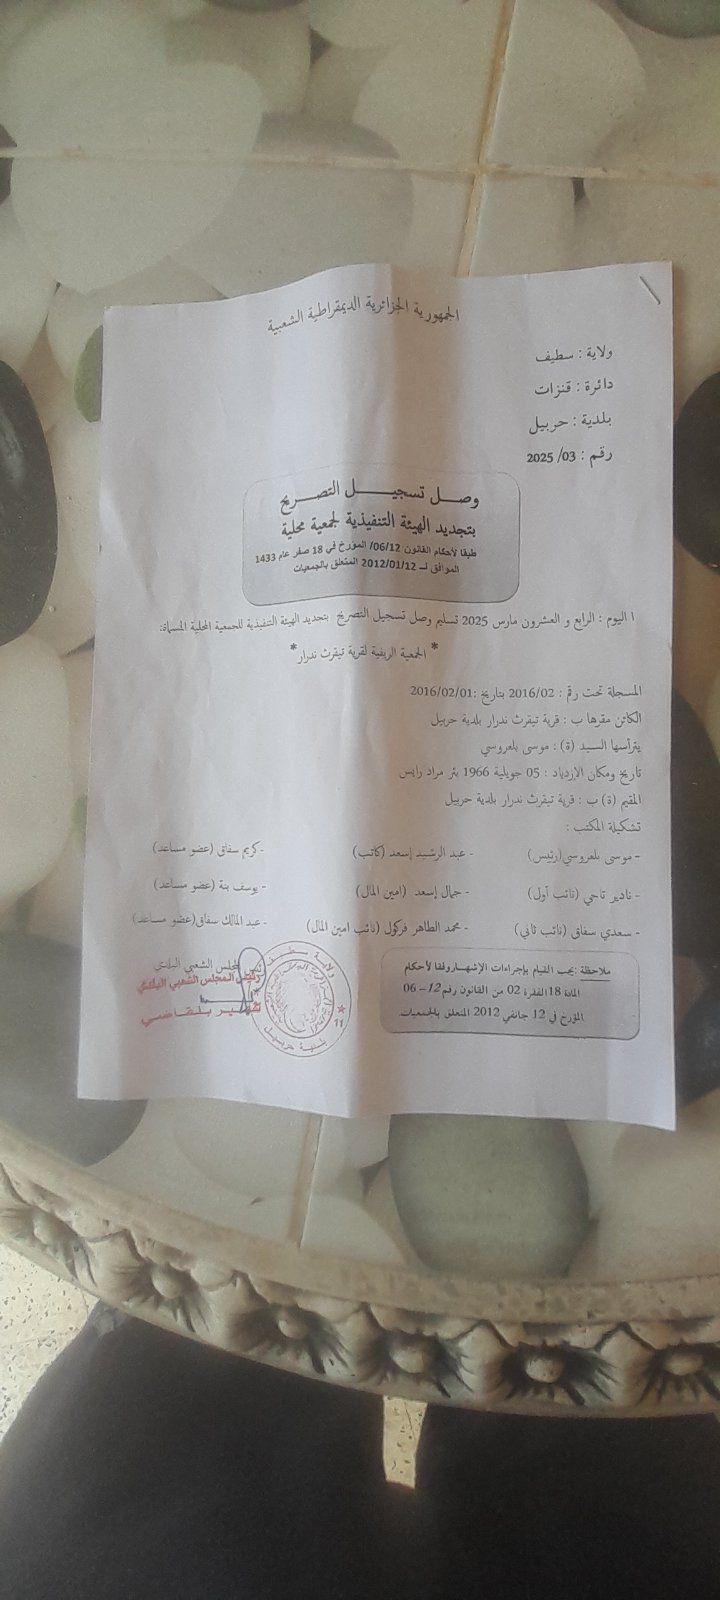 الجمهورية الجزائرية الديمقراطية الشعبية
ولاية : سطيف
دائرة : قنزات
بلدية : حربيل
رقم : 03/ 2025
وصل تسجيل التصريح
بتجديد الهيئة التنفيذية لجمعية محلية
طبقا لأحكام القانون 06/12/ المؤرخ في 18 صفر عام 1433
الموافق لـ 2012/01/12 المتعلق بالجمعيات
اليوم : الرابع و العشرون مارس 2025 تسليم وصل تسجيل التصريح بتجديد الهيئة التنفيذية للجمعية المحلية المسماة:
* الجمعية الريفية لقرية تيقرث ندرار*
المسجلة تحت رقم : 2016/02 بتاريخ :2016/02/01
الكائن مقرها ب : قرية تيقرث ندرار بلدية حربيل
يترأسها السيد (ة) : موسى بلعروسي
تاريخ ومكان الإزدياد : 05 جويلية 1966 بئر مراد رايس
المقيم (ة) ب : قرية تيقرث ندرار بلدية حربيل
تشكيلة المكتب :
- موسى بلعروسي(رئيس) - عبد الرشيد إسعد (كاتب) - كريم سفاق (عضو مساعد)
- نادير تاحي (نائب أول) - جمال إسعد (امين المال) - يوسف بنة (عضو مساعد)
- سعدي سفاق (نائب ثاني) - محمد الطاهر فركول (نائب امين المال) - عبد المالك سفاق(عضو مساعد)
ملاحظة :يجب القيام بإجراءات الإشهاروفقا لأحكام
المادة 18الفقرة 02 من القانون رقم 12– 06
المؤرخ في 12 جانفي 2012 المتعلق بالجمعيات
المجلس الشعبي البلدي
رئيس المجلس الشعبي البلدي
بلقاضي
ولاية سطيف
بلدية حربيل
11